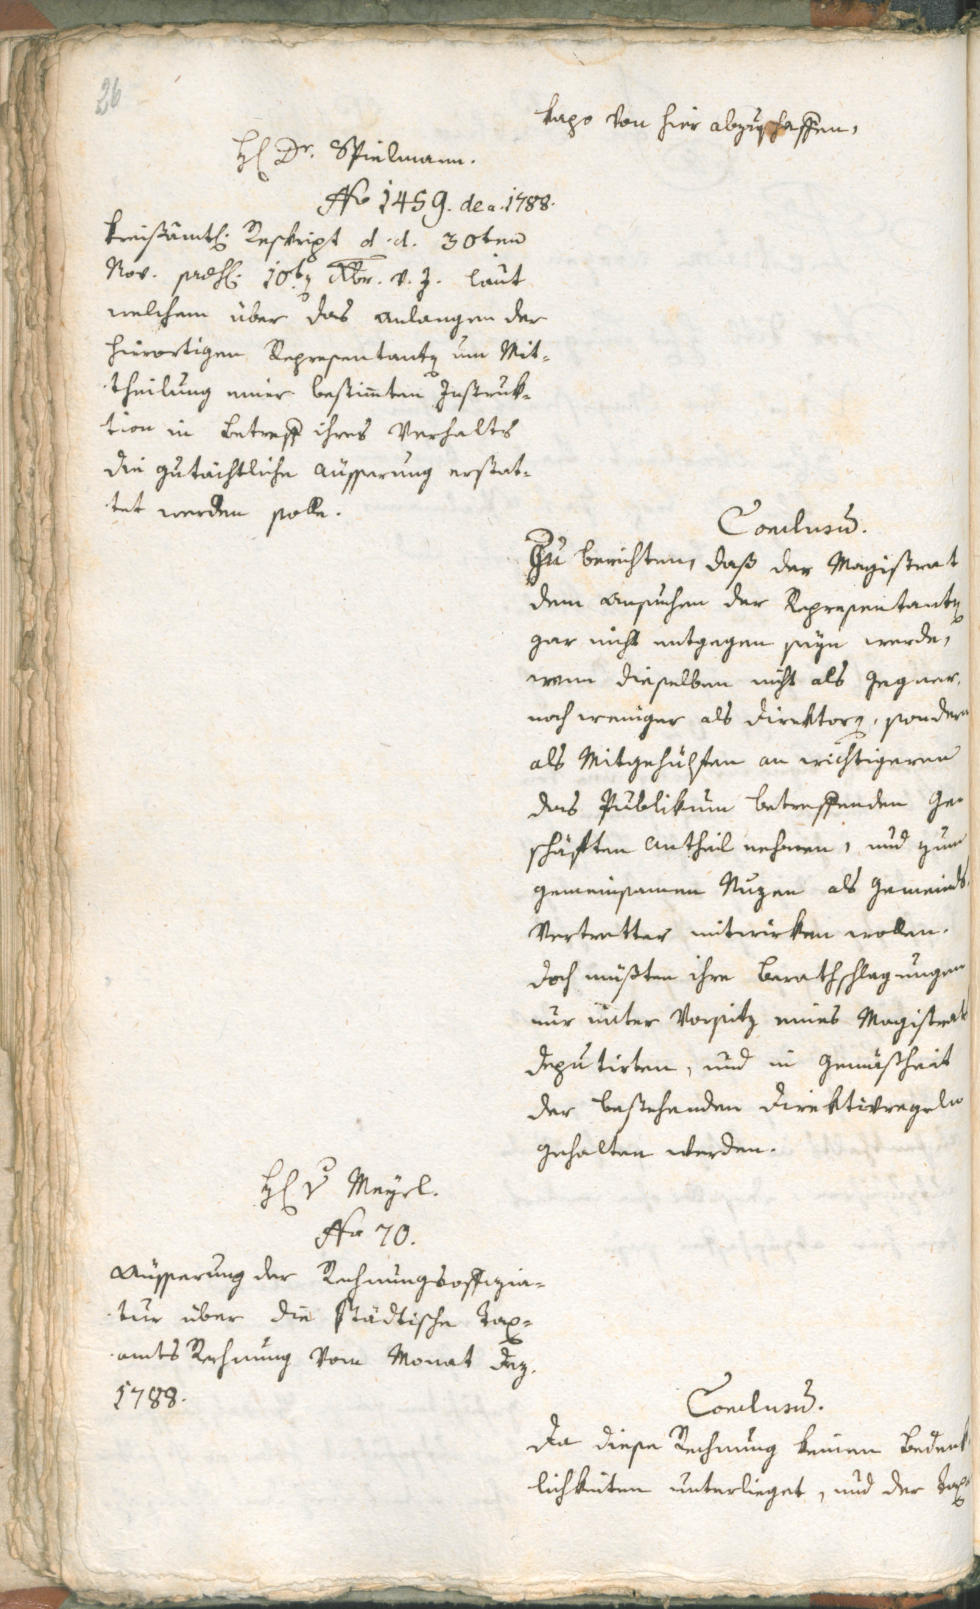 26
von hier abzuschaffen,
H Dr. Spielmann.
No 1459. de a. 1788.
Kreißämtl. Reskript d. d. 30ten
Nov. 10ber v. J. laut
welchem über das Anlangen der
hierortigen Repräsentanten um Mit-
theilung einer bestim̄ten Instruk-
tion in Betreff ihres Verhalts
die gutächtliche Äusserung erstat-
tet werden solle.
Conclusum.
Zu berichten, daß der Magistrat
dem Ansuchen der Representanten
gar nicht entgegen seyn werde,
wenn dieselben nicht als Gegner,
noch weniger als Direktoren, sondern
als Mitgehülfen an wichtigeren
das Publikum betreffenden Ge-
schäften Antheil nehmen, und zum
gemeinsamen Nuzen als Gemeinds-
Vertretter mitwirken wollen.
Doch müßten ihre Berathschlagungen
nur unter Vorsitz eines Magistrats
deputirten, und in Gemäßheit
der bestehenden Direktivregeln
gehalten werden.
H v Meyrl.
No 70.
Äusserung der Rechnungsoffizia-
tur über die städtische Tax-
amts Rechnung vom Monat Dez.
1788.
Conclusum.
Da diese Rechnung keinen Bedenk-
lichkeiten unterlieget, und der Tax-